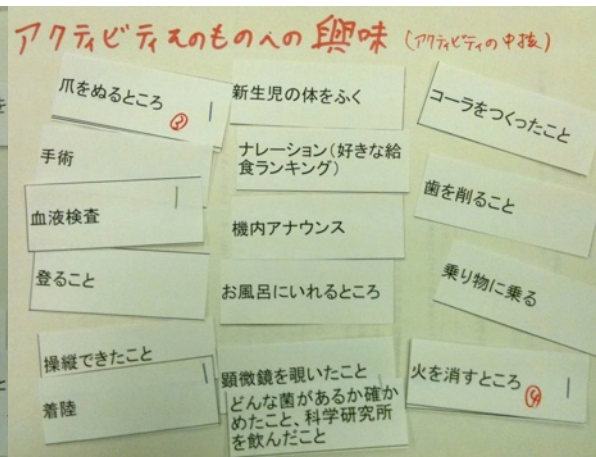 アクティビティそのものへの興味(アクティビティの中核)
爪をぬるところ
②
手術
血液検査
登ること
操縦できたこと
着陸
新生児の体をふく
ナレーション(好きな給
食ランキング)
機内アナウンス
お風呂にいれるところ
顕微鏡を覗いたこと
どんな菌があるか確か
めたこと、科学研究所
を飲んだこと
コーラをつくったこと
歯を削ること
乗り物に乗る
火を消すところ
④